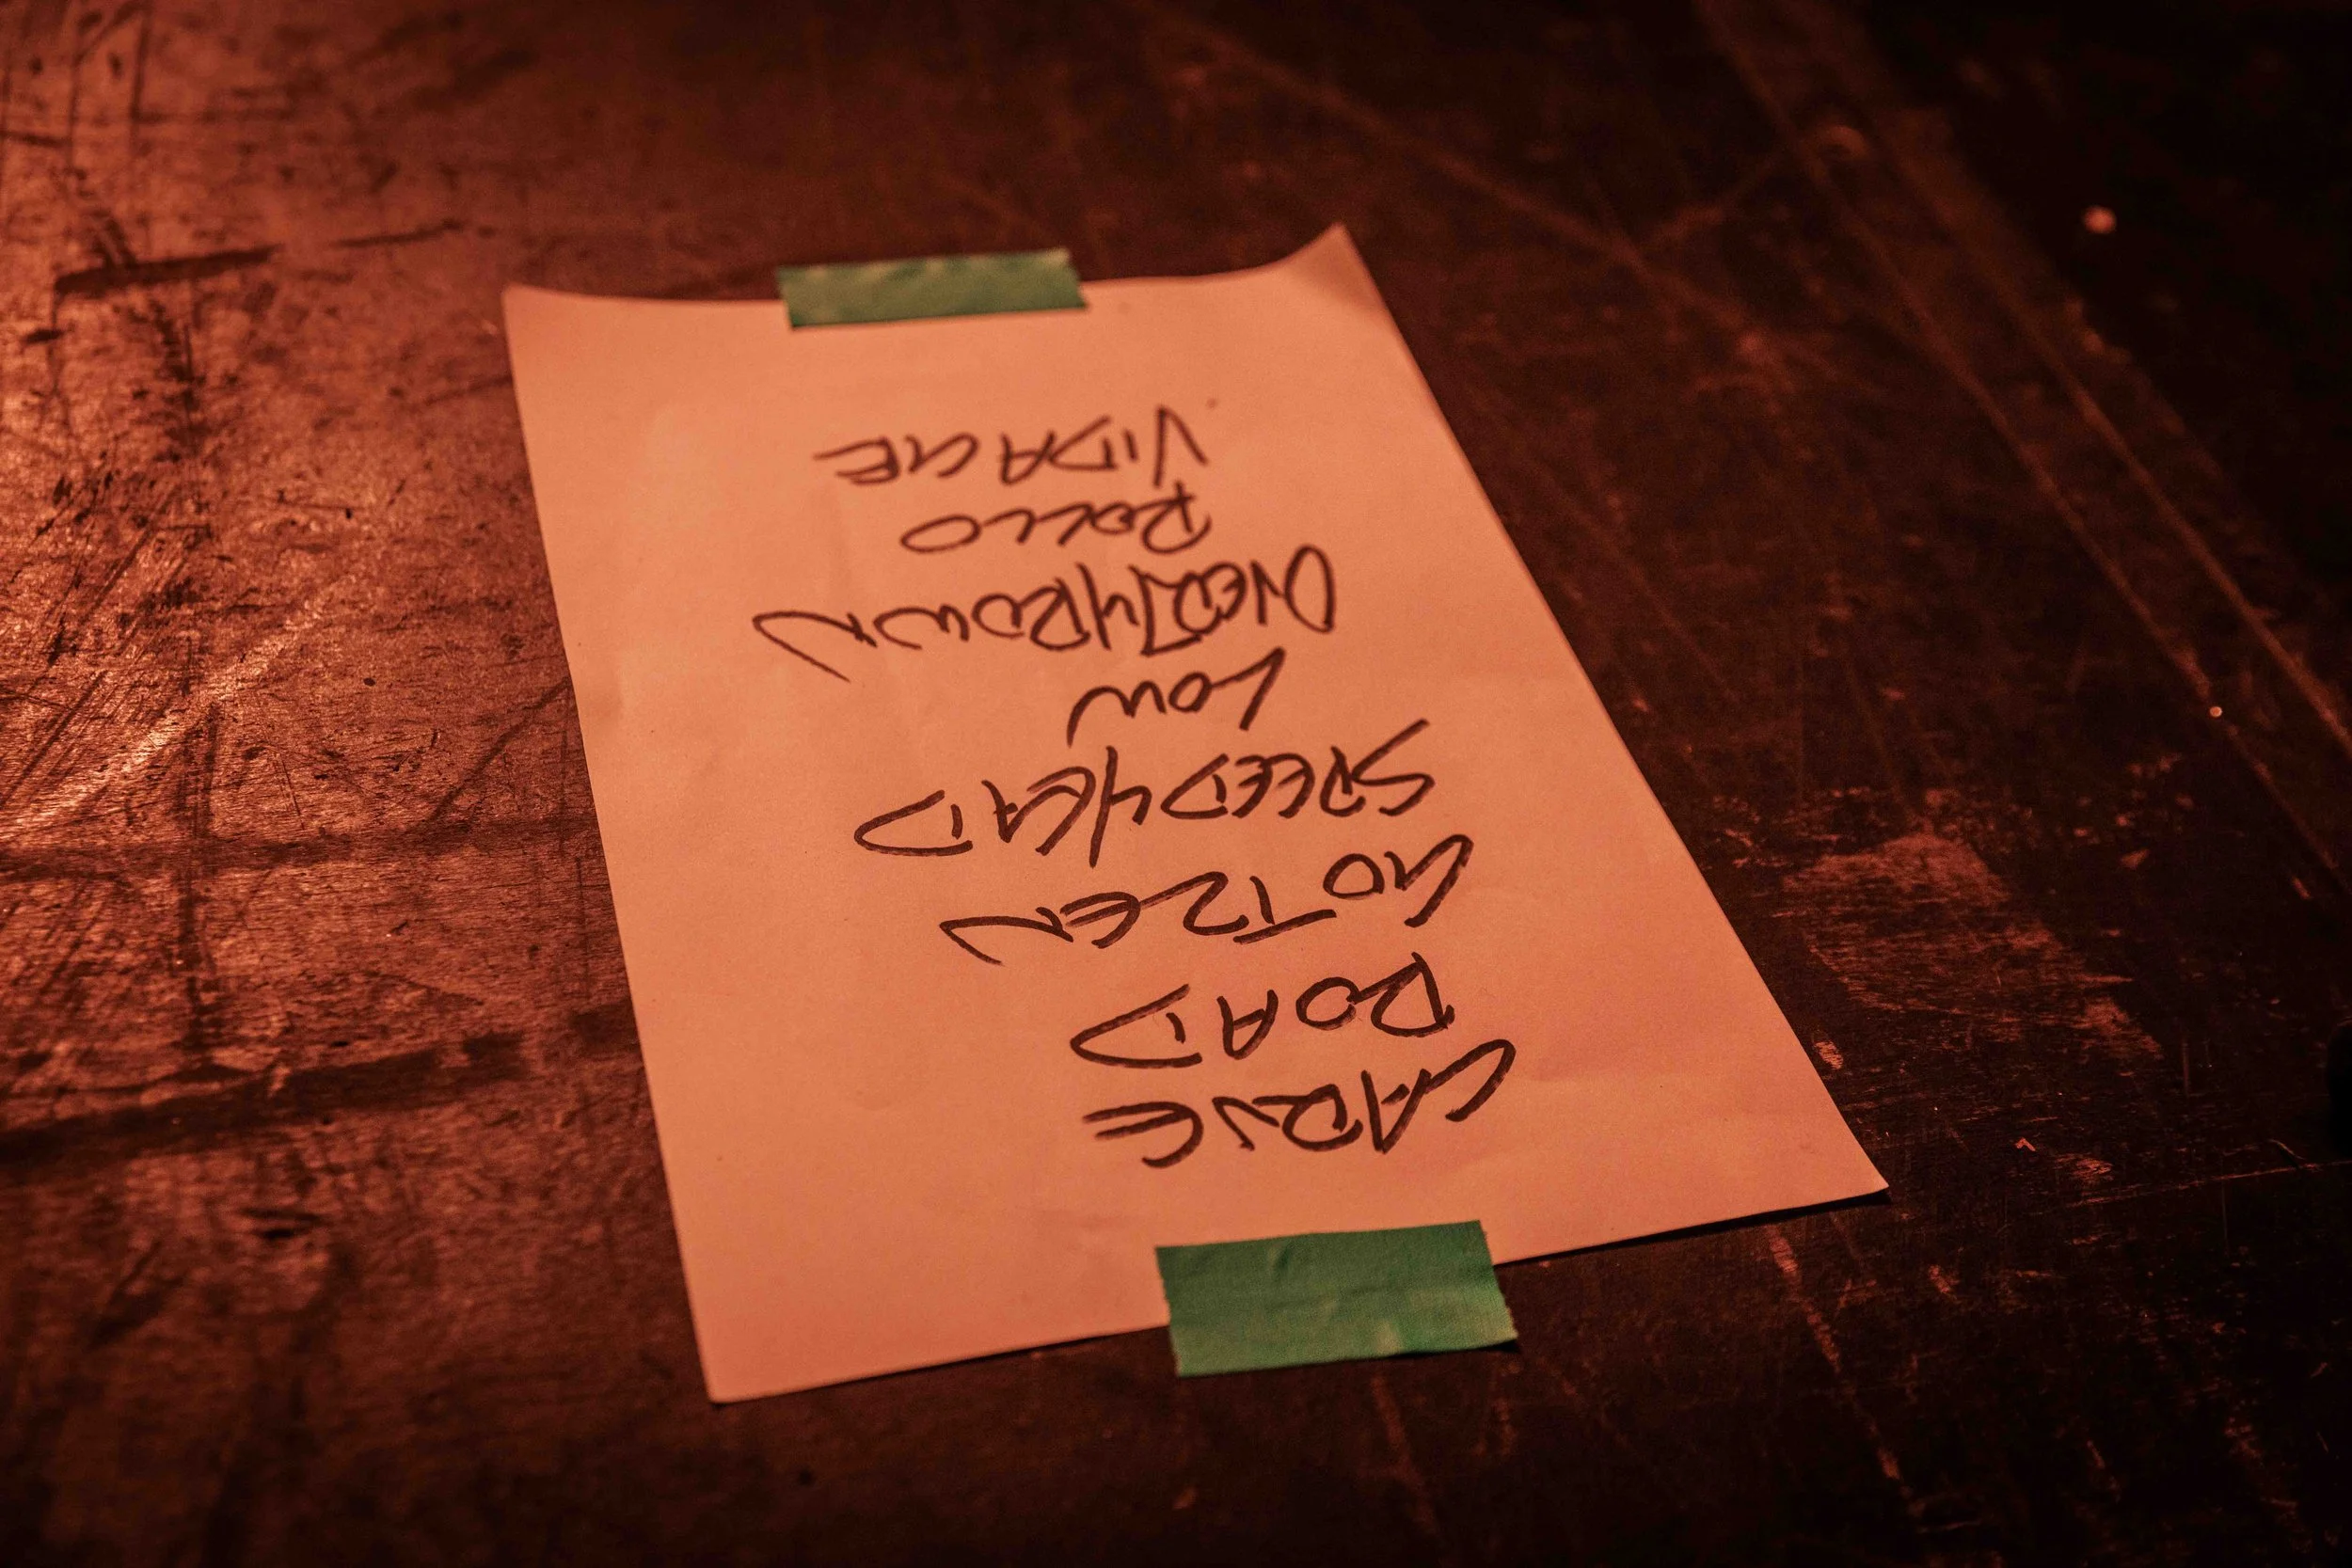 CARVE
ROAD
GOTZEN
SPEEDHEAD
LOW
OVERTHROWN
ROLLO
VIDAGE